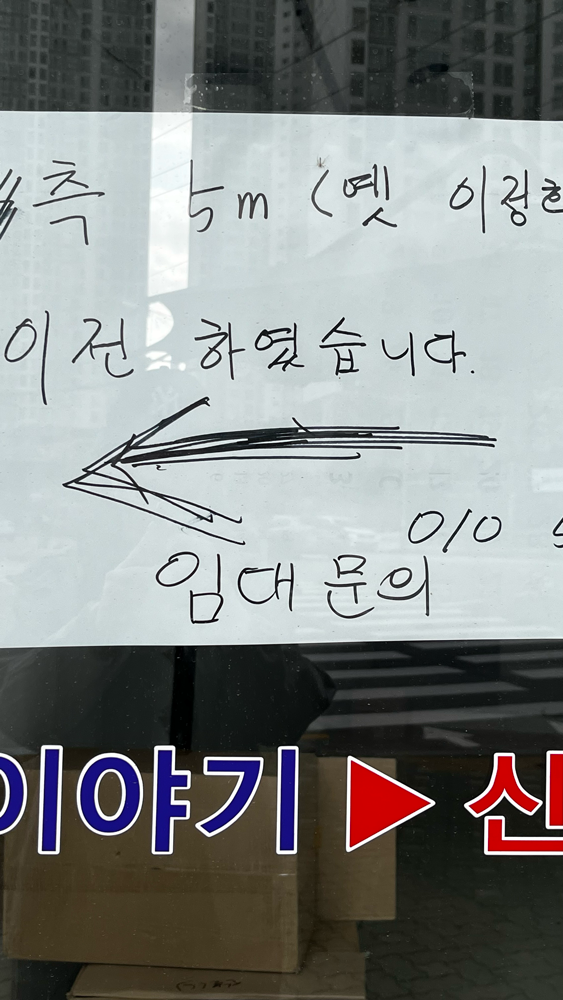 측 5m (옛 이정
이전 하였습니다.
010
임대문의
이야기 ▶ 신